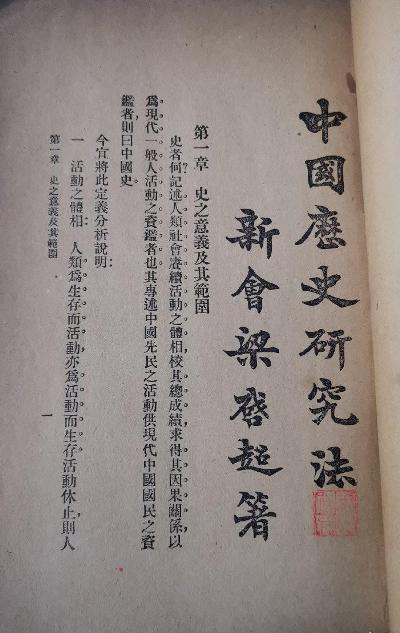 中國歷史研究法
新會梁啓超著
第一章　史之意義及其範圍
史者何？記述人類社會賡續活動之體相，校其總成績，求得其因果關係，以
爲現代一般人活動之資鑑者也。其專述中國先民之活動，供現代中國國民之資
鑑者，則曰中國史。
今宜將此定義分析說明：
一　活動之體相：人類爲生存而活動，亦爲活動而生存。活動休止，則人
第一章　史之意義及其範圍
一